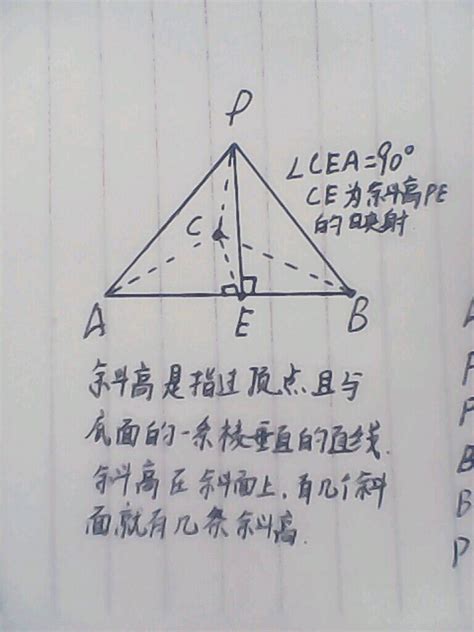 P
∠CEA=90°
CE为斜高PE
的映射
C
A
E
B
斜高是指过顶点且与
底面的一条棱垂直的直线.
斜高在斜面上,有几个斜
面就有几条斜高.
P
B
B
P